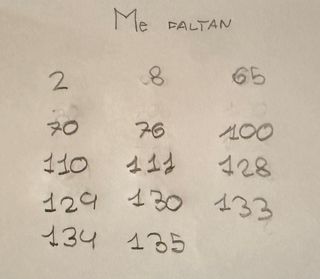 Me FALTAN
2 8 65
70 76 100
110 111 128
129 130 133
134 135